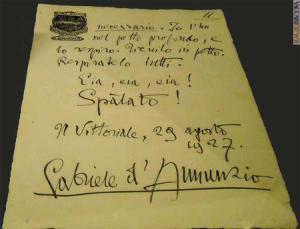 necessario. Io l'ho
nel petto profondo, e
lo respiro. in petto.
Respiratelo tutti.
Eia, eia, eia!
Spàlato!
Il Vittoriale, 29 agosto
1927.
Gabriele d'Annunzio